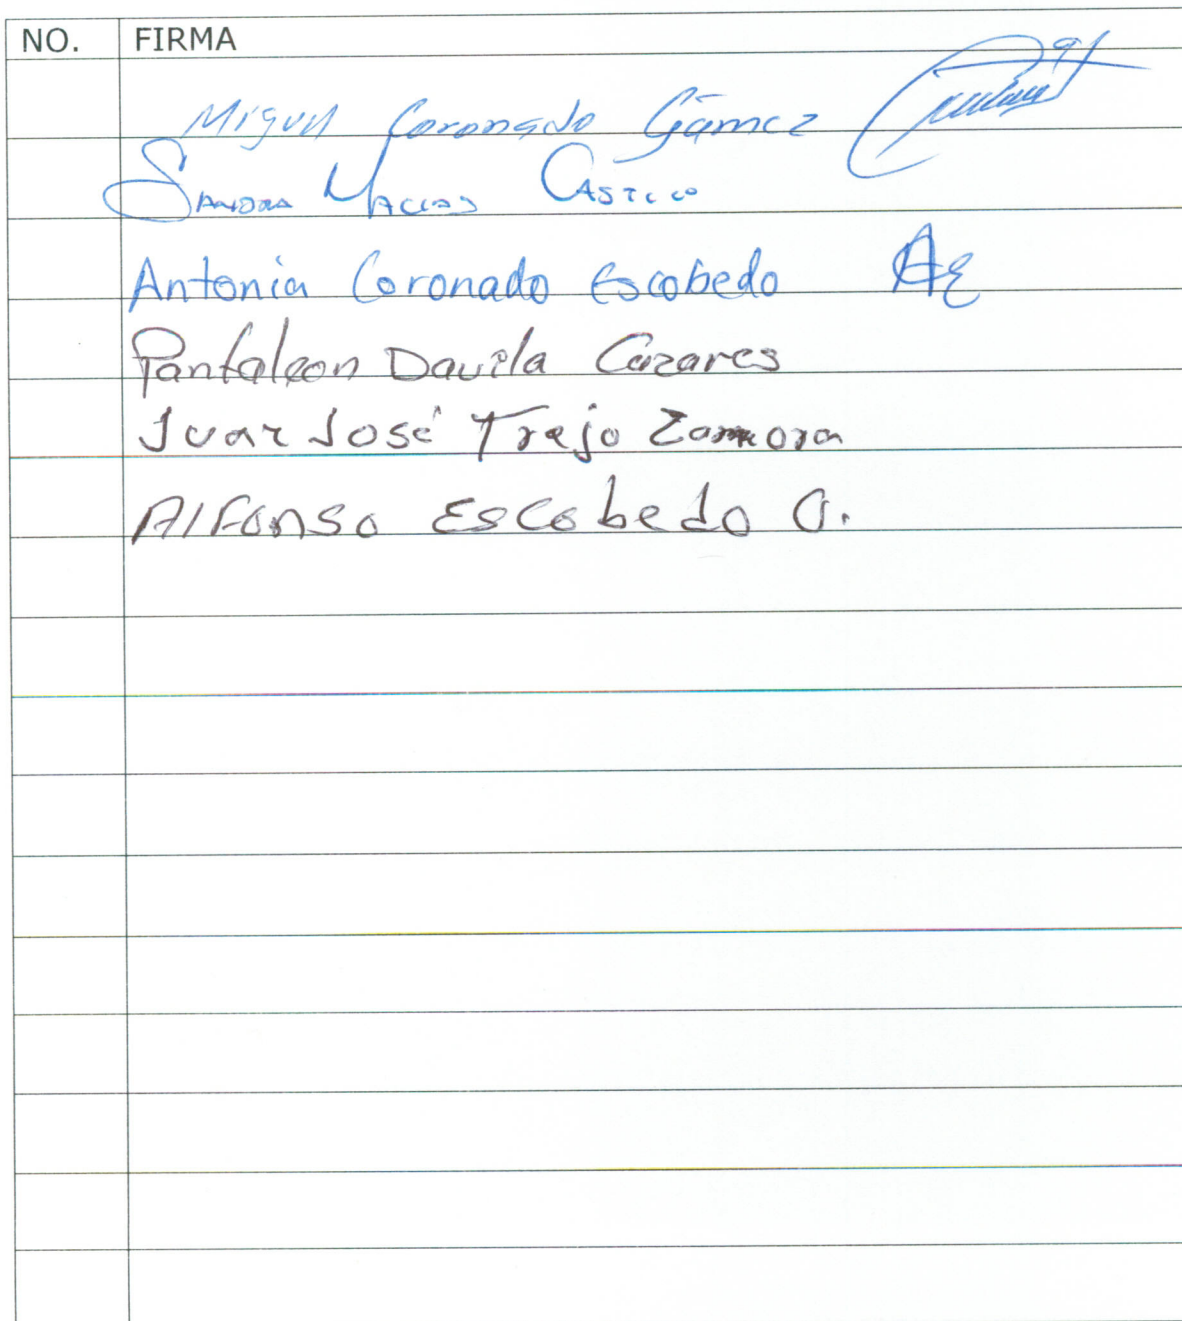 NO. FIRMA
Miguel Coronado Gámez
Sandra Macias Castillo
Antonia Coronado Escobedo AE
Pantaleon Davila Cazares
Juan José Trejo Zamora
Alfonso Escobedo O.